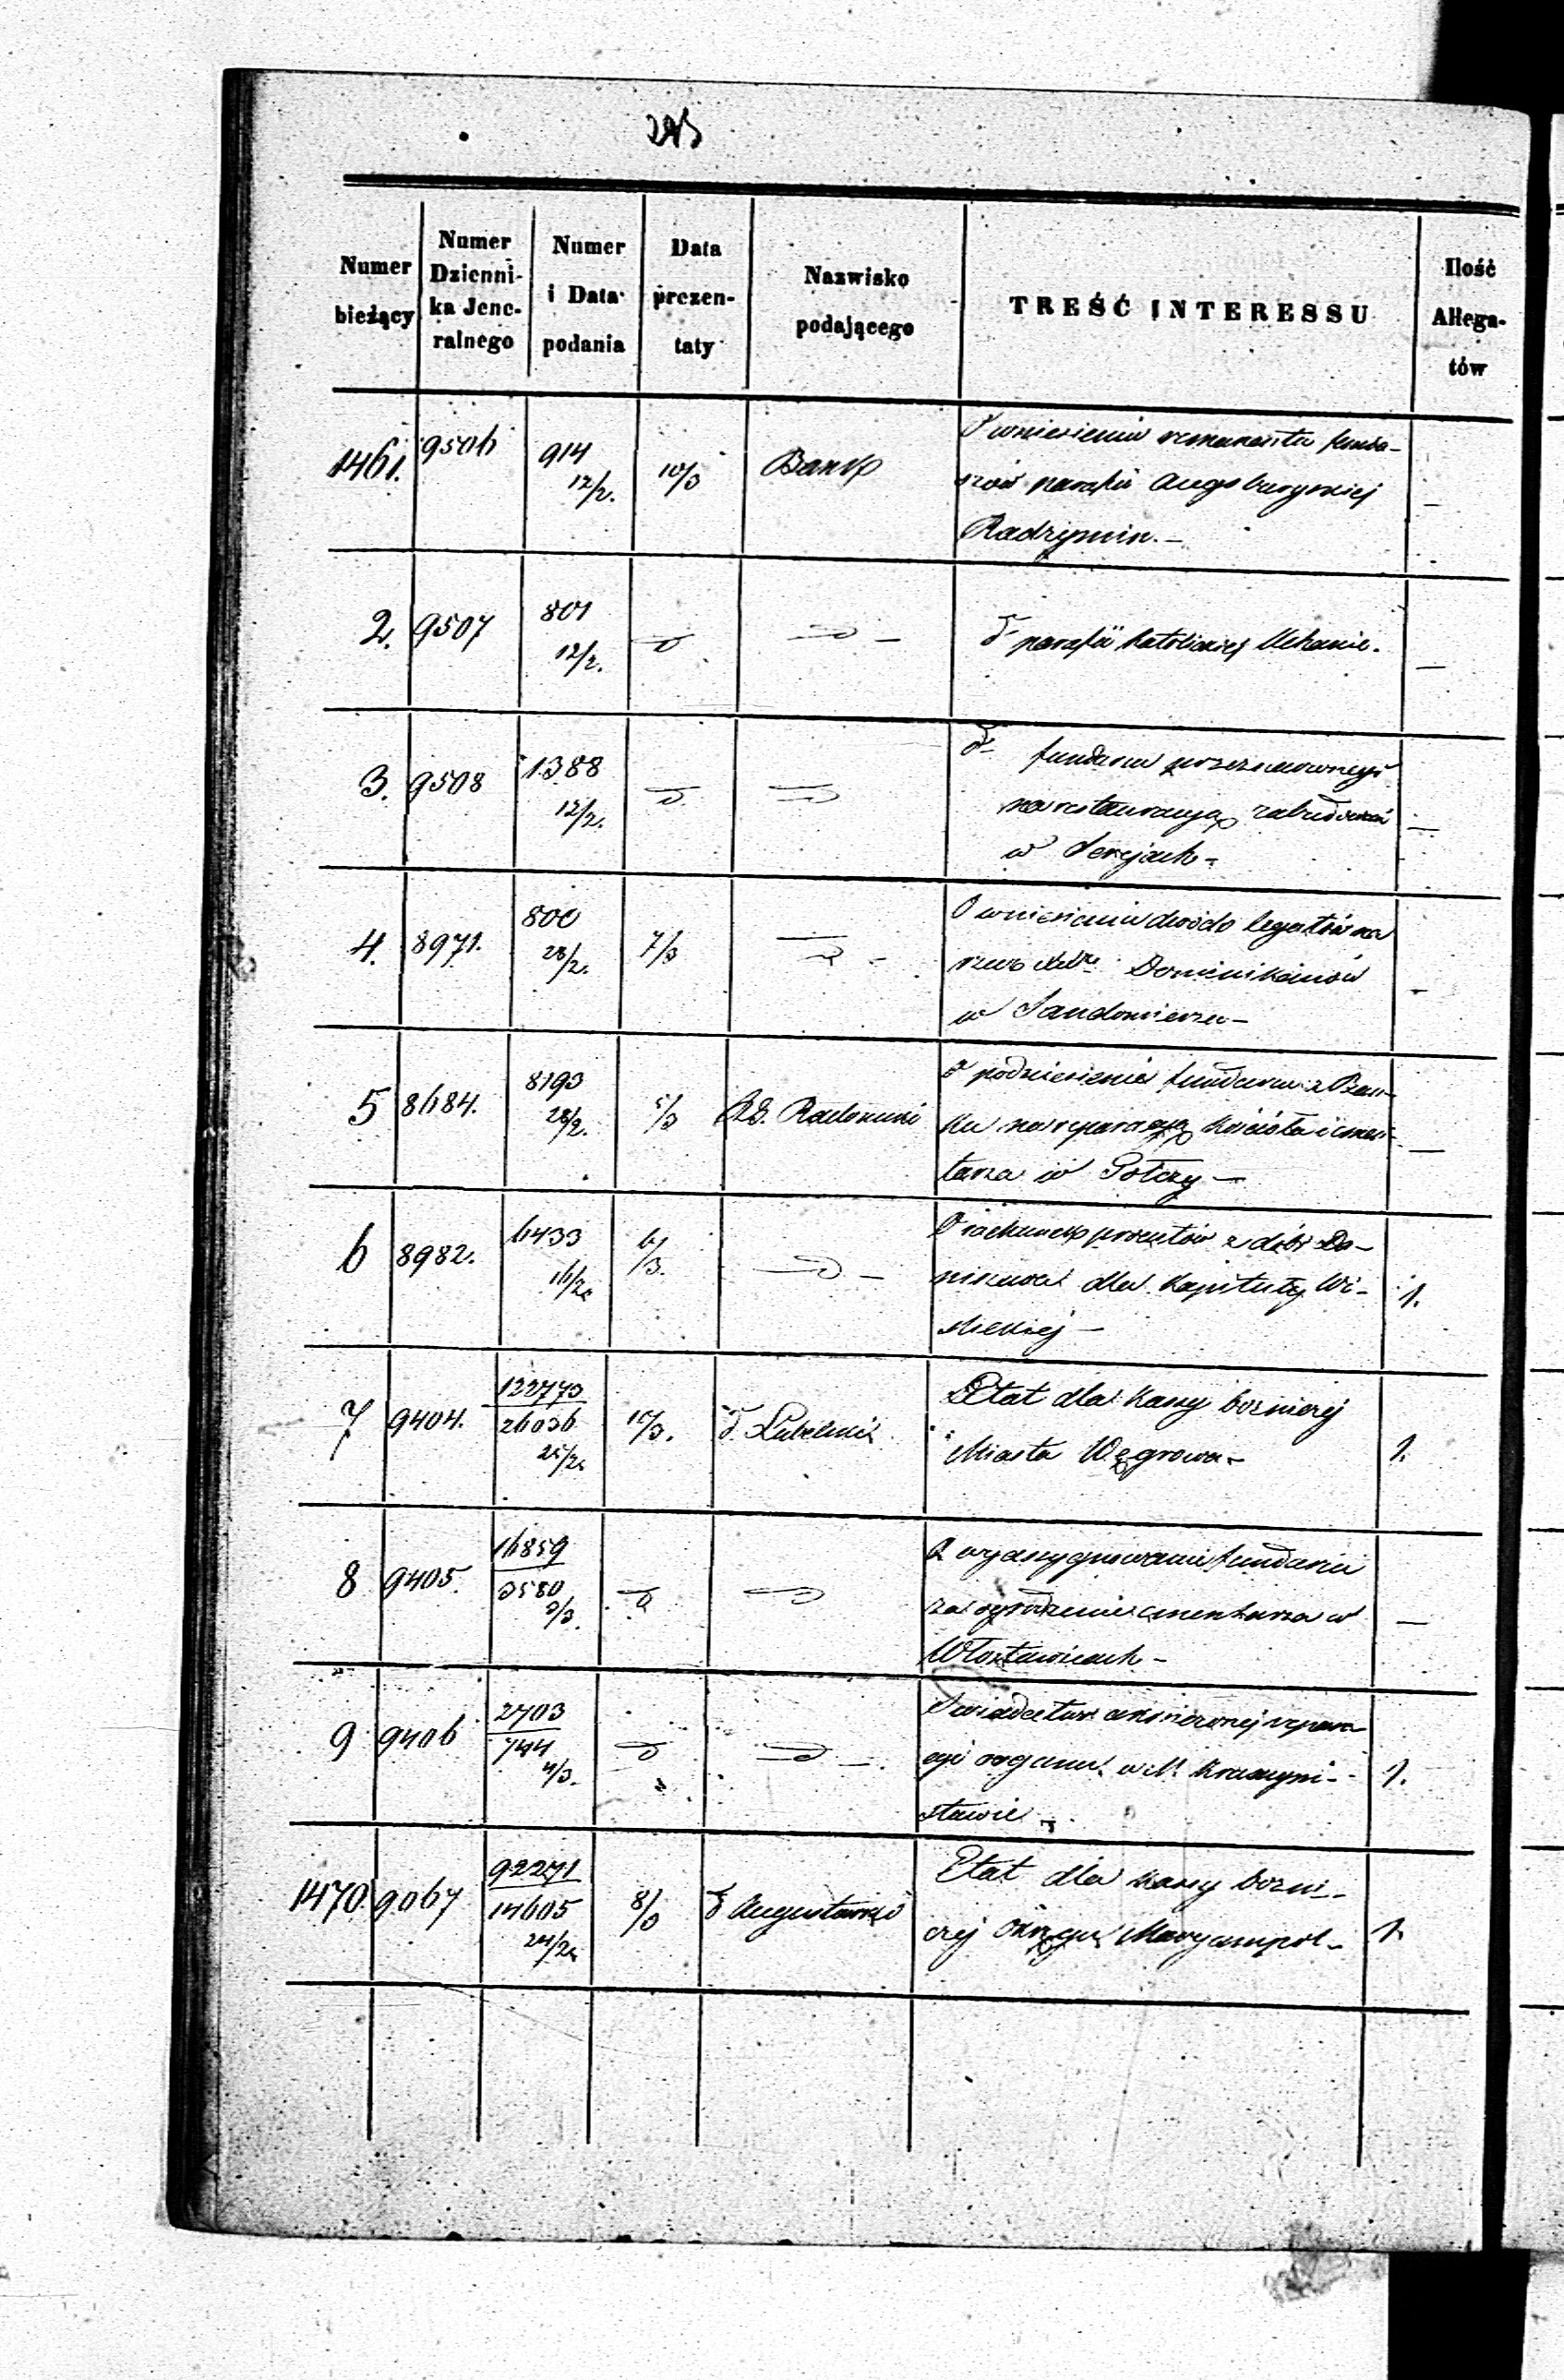 Numer bieżący
Numer Dzienni-
ka Jene-
ralnego
Numer
i Data
podania
Data
prezen-
taty
Nazwisko
podającego
TREŚĆ INTERESSU
Ilość
Allega-
tów
1461. 9506 914 12/2. 10/3 Bank O wniesieniu remanentu fundu-
szów parafii Augsburgskiej
Radzymin. –
2. 9507 801 12/2. d° d° – d° parafii Katolickiej –
3. 9508 1388 12/2. d° d° d° funduszu przeznaczonego
na restauracyą zabudowań
w Serejach –
4. 8971. 800 28/2. 7/3 d° – O wniesieniu dwóch legatów na
rzecz Dominikanów
w Sandomierzu –
5 8684. 8193 28/2. 5/3 R.G. Radomski O podniesienie funduszu z Ban-
ku na reparacyą Kościoła i cmen-
tarza w –
6 8982. 6433 16/2. 6/3. d° – O rachunek procentów z dóbr
dla Kapituły Wi-
ślickiej – 1.
7 9404. 122773
26036 25/2. 10/3. d° Lubelski Etat dla Kassy bożniczej
Miasta Węgrowa – 1.
8 9405. 16859
3580 3/3. d° d° O wyassygnowanie funduszu
za ogrodzenie cmentarza w
Włostowicach – –
9 9406 2703
744 4/3. d° d° – Świadectwo ukończonej repara-
cyi organu w M. Krasnym-
stawie – 1.
1470 9067 92271
14605 24/2. 8/3 d° Augustowski Etat dla kassy bożni-
czej Okręgu Maryampol – 1.